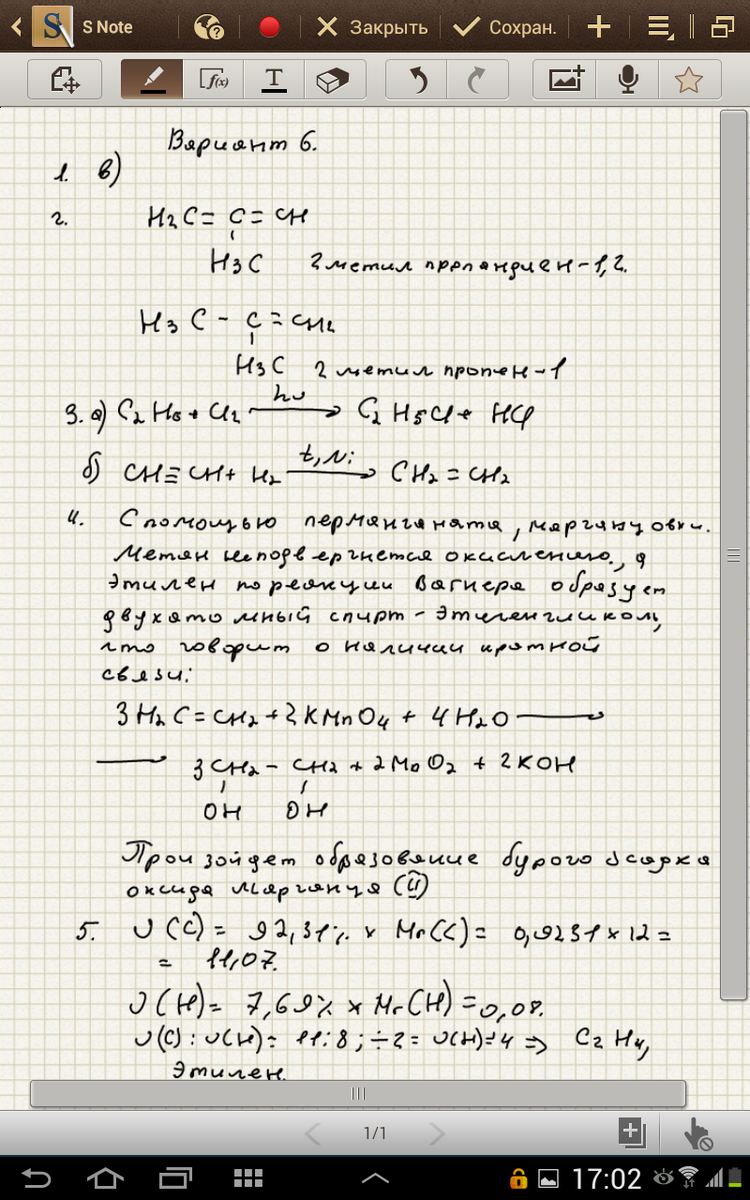 S Note
Закрыть
Сохран.
f(x)
T
Вариант 6.
1. в)
2. H2C = C = CH
H3C 2 метил пропандиен-1,2.
H3C - C = CH2
H3C 2 метил пропен-1
3. а) C2H6 + Cl2 hν → C2H5Cl + HCl
б) CH≡CH + H2 t, Ni → CH2 = CH2
4. С помощью перманганата, марганцовки.
Метан не подвергнется окислению, а
этилен по реакции Вагнера образует
двухатомный спирт - этиленгликоль,
что говорит о наличии кратной
связи:
3H2C = CH2 + 2KMnO4 + 4H2O →
→ 3CH2 - CH2 + 2MnO2 + 2KOH
OH OH
Произойдет образование бурого осадка
оксида марганца (II)
5. ν(C) = 92,31% × Mr(C) = 0,9231 × 12 =
= 11,07.
ν(H) = 7,69% × Mr(H) = 0,08.
ν(C) : ν(H) = 11:8 ; ÷2 = ν(H)=4 ⇒ C2H4,
этилен.
1/1
17:02